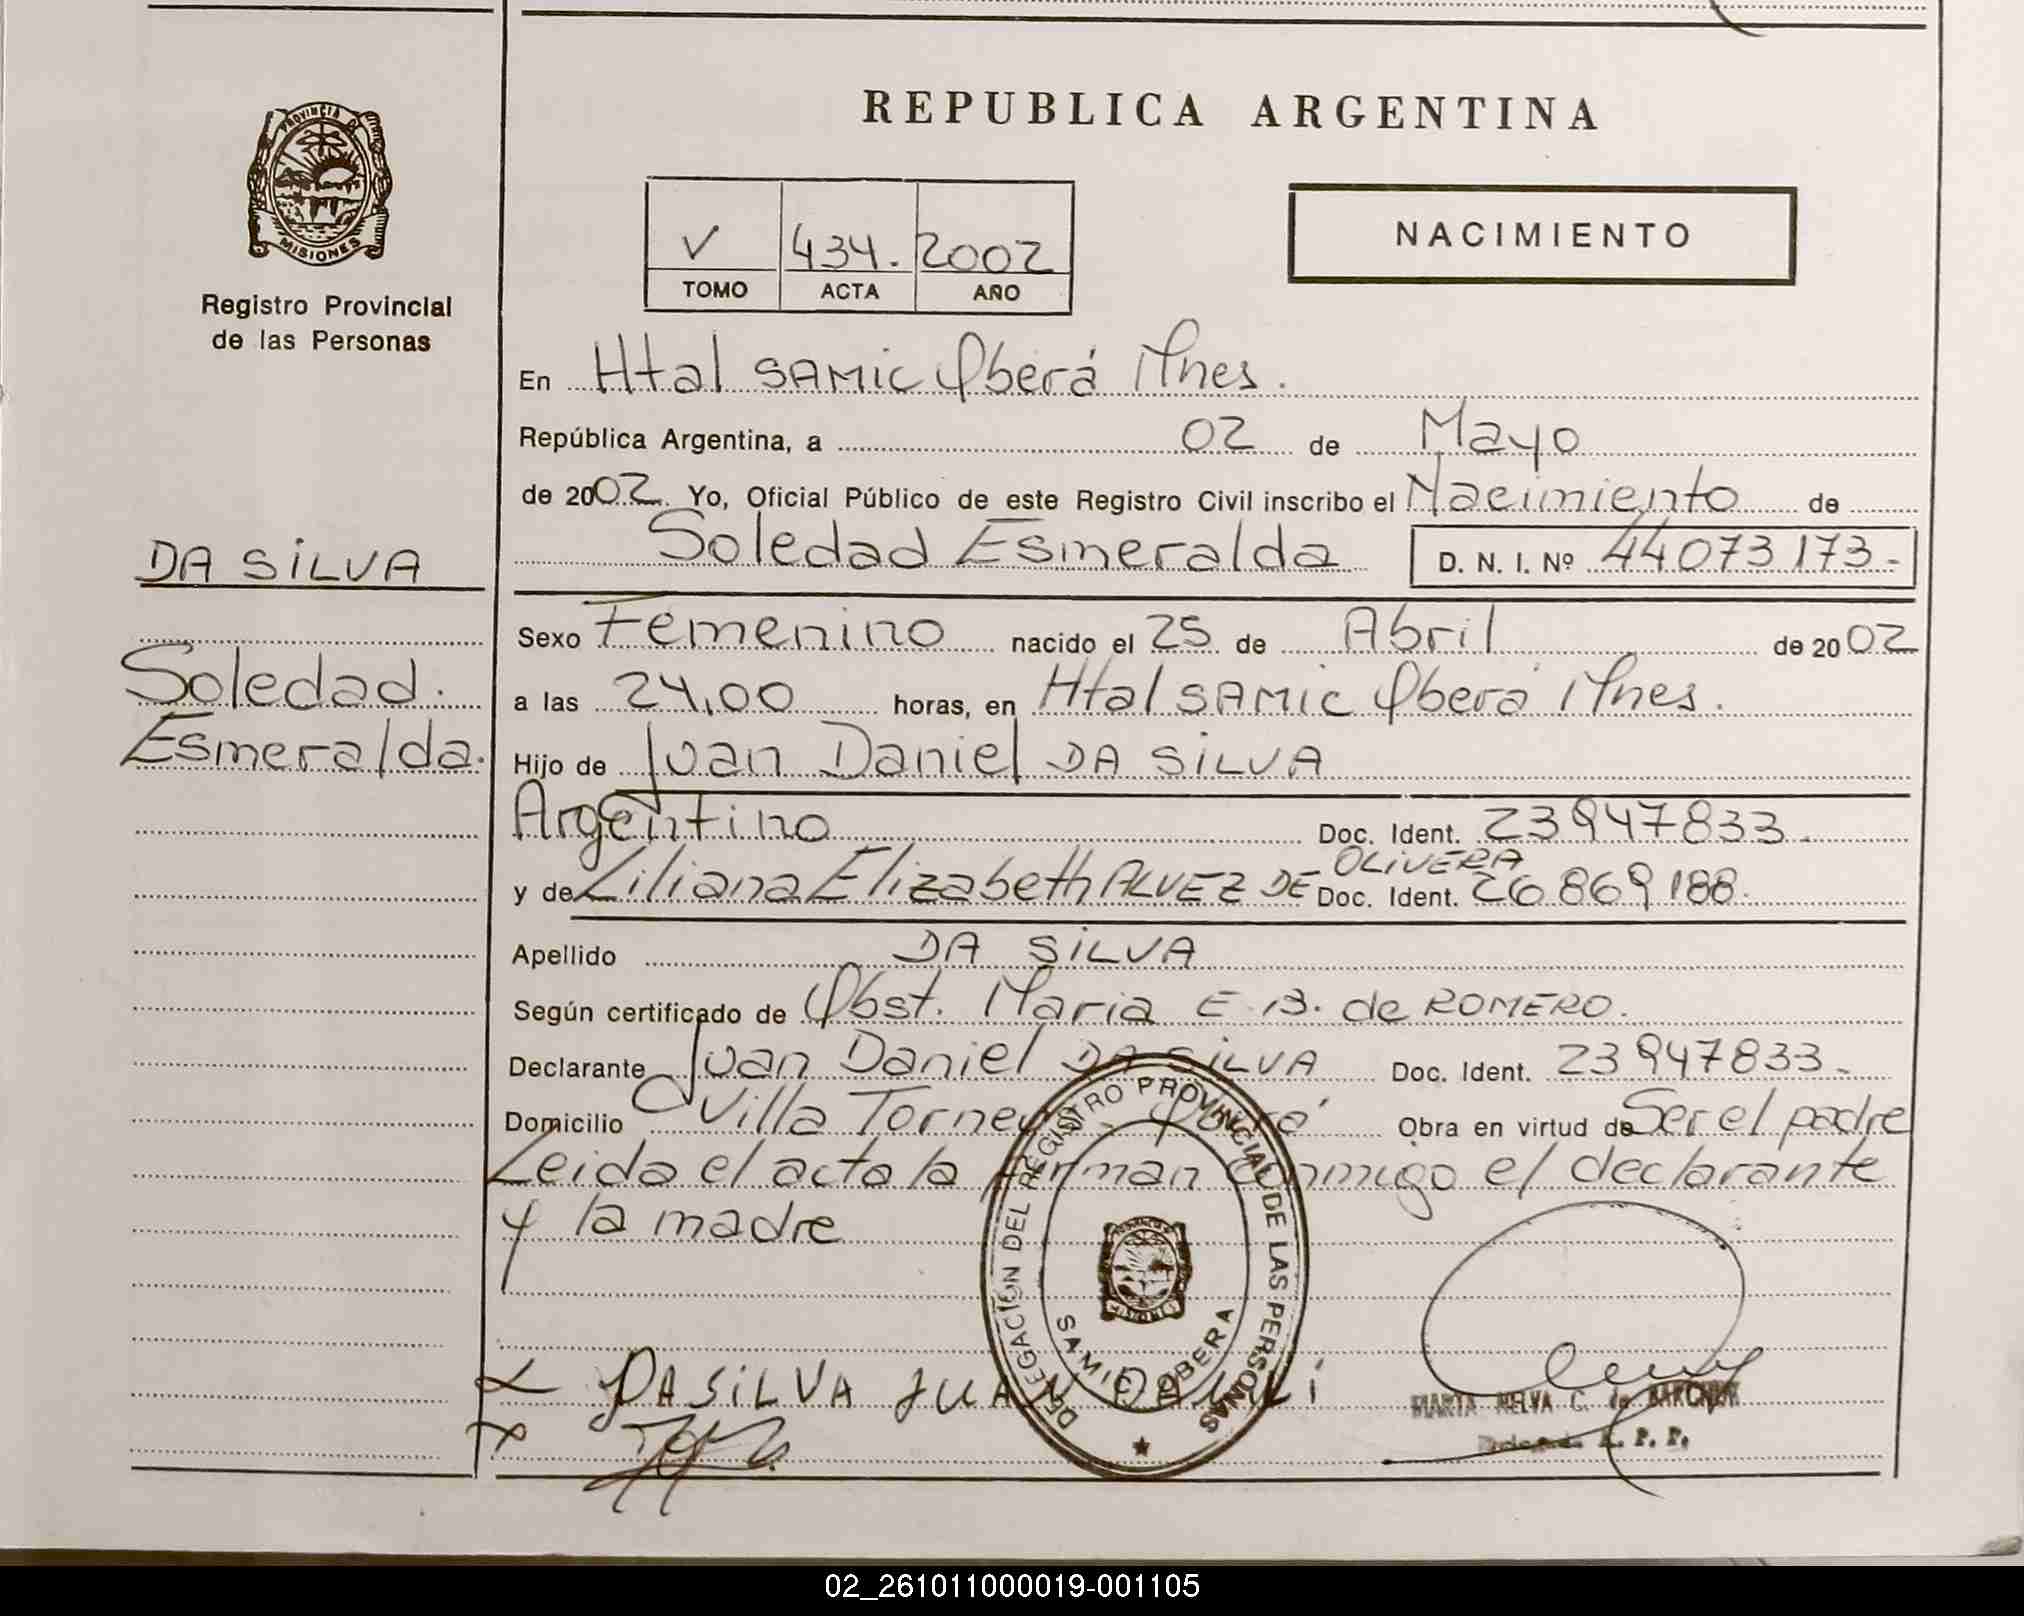 REPUBLICA ARGENTINA
PROVINCIA DE
MISIONES
Registro Provincial
de las Personas
V 434. 2002
TOMO ACTA AÑO
NACIMIENTO
En Htal SAMIC Oberá Mnes.
República Argentina, a 02 de Mayo
de 2002. Yo, Oficial Público de este Registro Civil inscribo el Nacimiento de
Soledad Esmeralda D. N. I. Nº 44073173-
DA SILVA
Soledad.
Esmeralda.
Sexo Femenino nacido el 25 de Abril de 2002
a las 24,00 horas, en Htal SAMIC Oberá Mnes.
Hijo de Juan Daniel DA SILVA
Argentino Doc. Ident. 23947833.
y de Liliana Elizabeth ALVEZ DE OLIVERA Doc. Ident. 26869188.
Apellido DA SILVA
Según certificado de Obst. Maria E. B. de ROMERO.
Declarante Juan Daniel DA SILVA Doc. Ident. 23947833.
Domicilio Villa Torneu - Oberá Obra en virtud de Ser el padre
Leida el acta la firman conmigo el declarante
y la madre
DELEGACIÓN DEL REGISTRO PROVINCIAL DE LAS PERSONAS
SAMIC OBERA
MISIONES
x DASILVA JUAN
x
MARTA NELVA C. de
R. P. P.
02_261011000019-001105